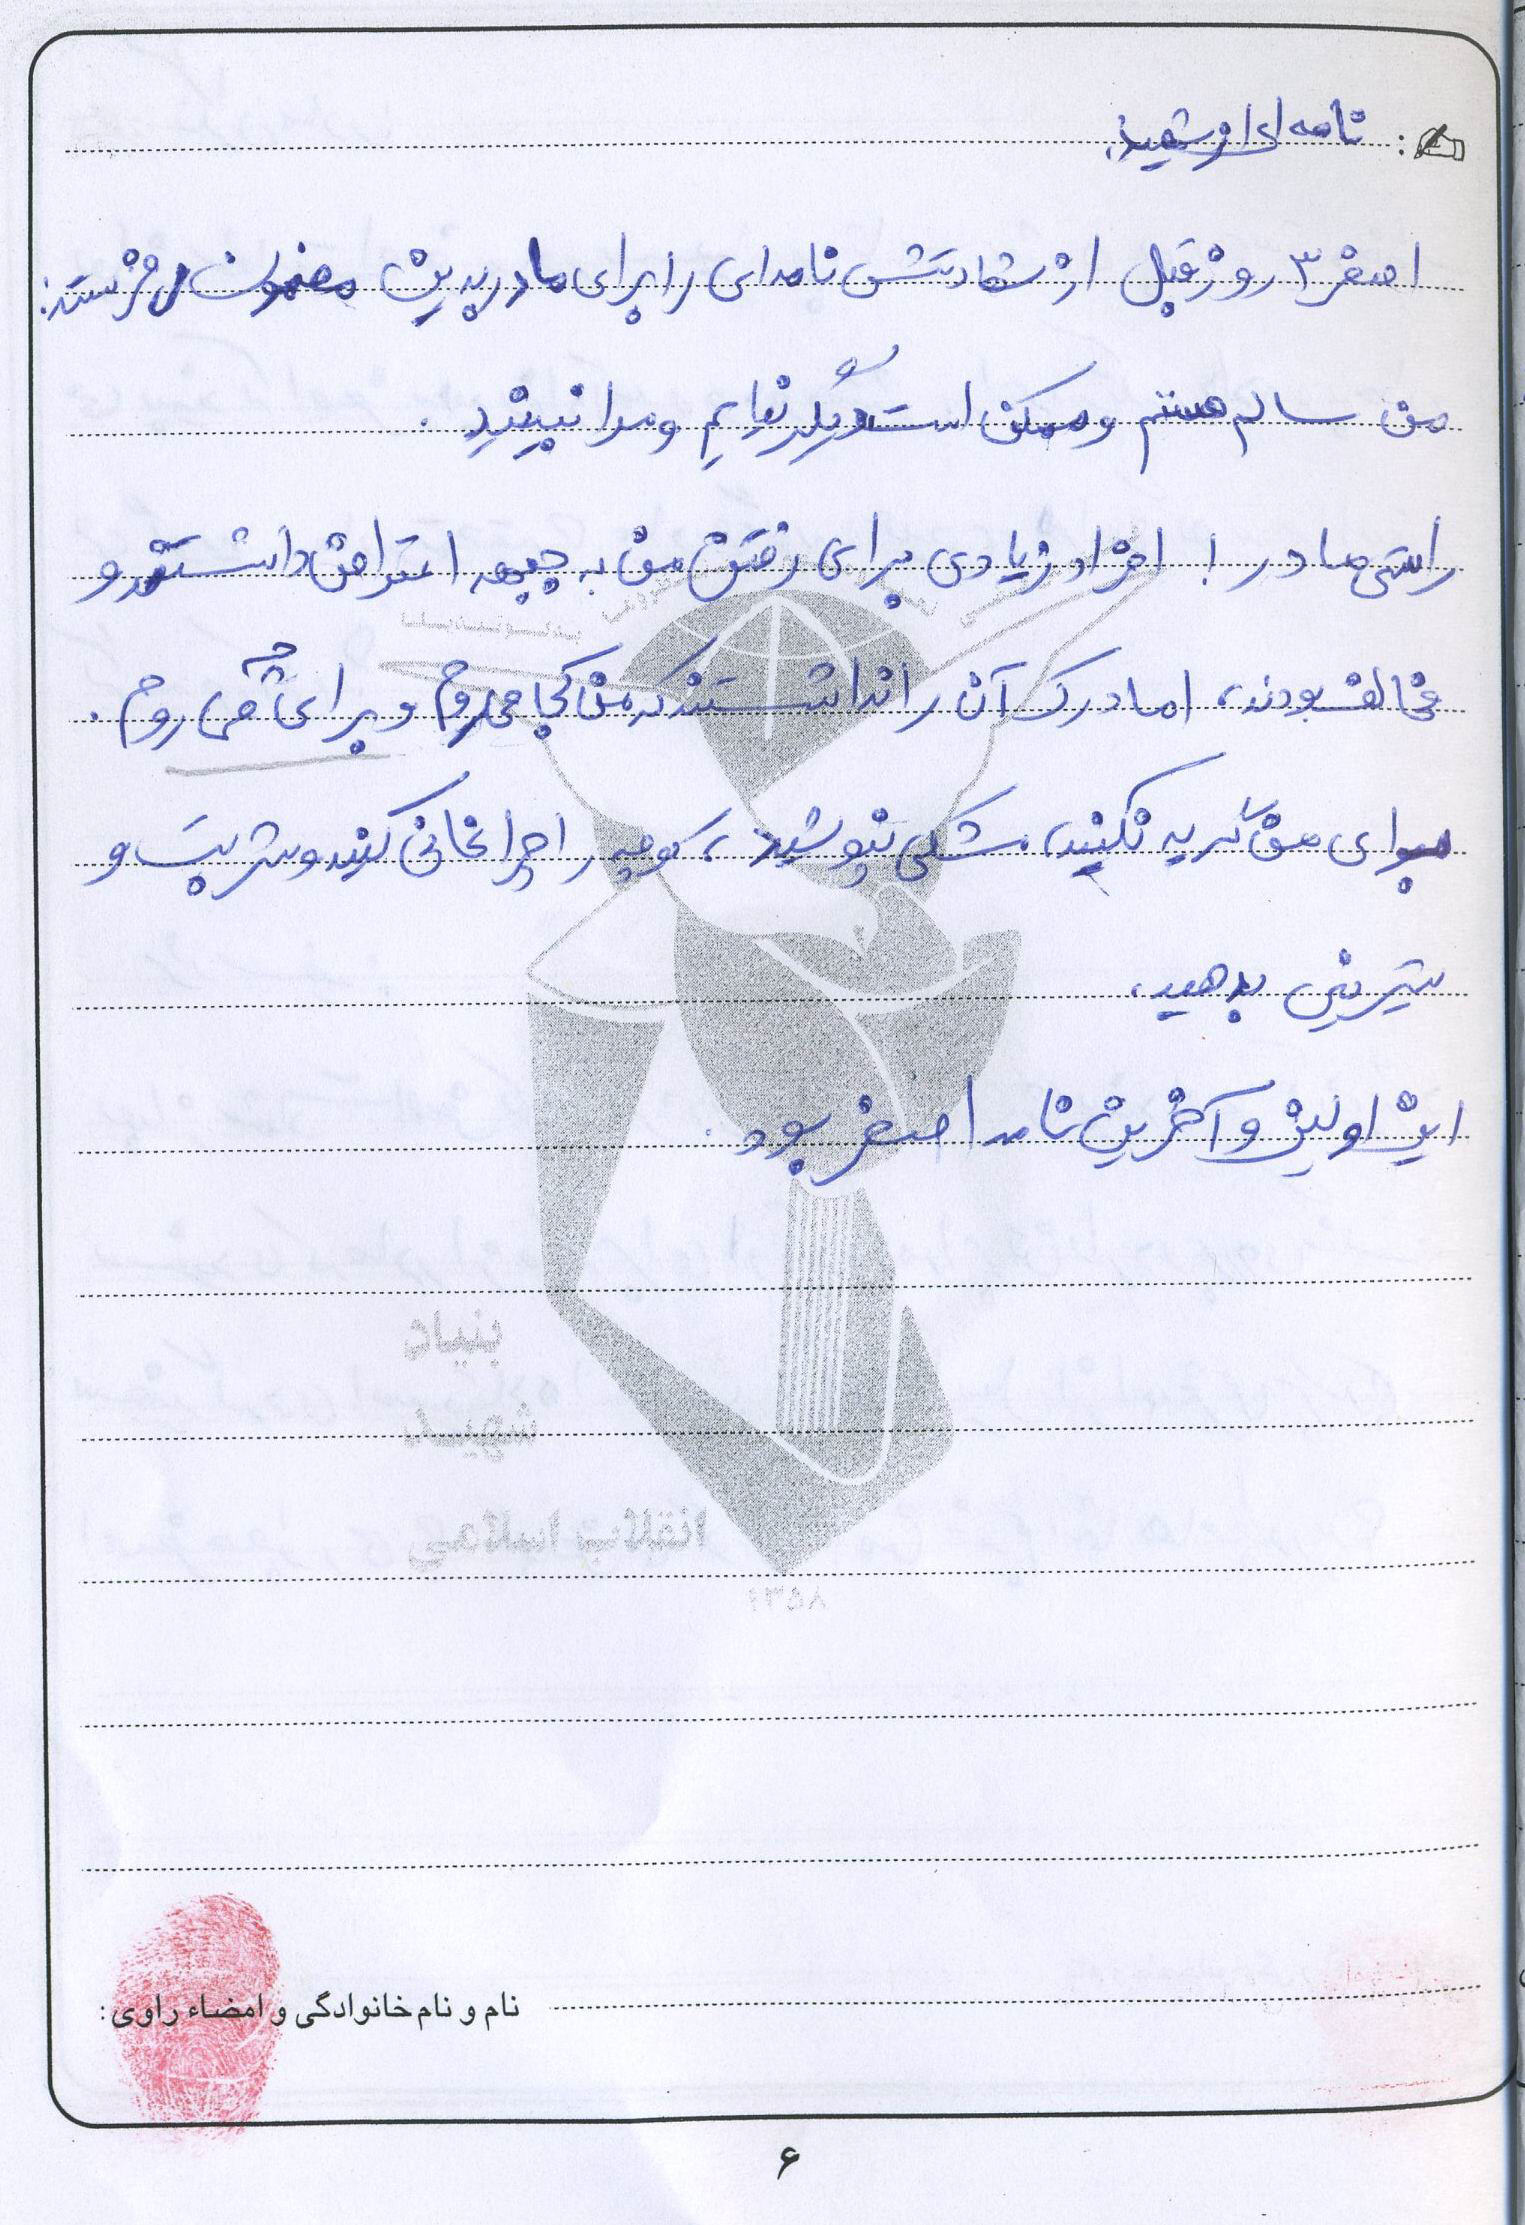 نامه ای از شهید:
اصغر ۳ روز قبل از شهادتش نامه ای را برای مادر بدین مضمون فرستد:
من سالم هستم و ممکن است دیگر نیایم و مرا نبینید.
راستی مادر! افراد زیادی برای رفتن من به جبهه اعتراض داشتند و
مخالف بودند، اما درک آن را نداشتند که من کجا می روم و برای چه می روم.
برای من گریه نکنید، مشکی نپوشید، کوچه را چراغانی کنید و شربت و
شیرینی بدهید.
این اولین و آخرین نامه اصغر بود.
بنیاد
شهید
انقلاب اسلامی
۱۳۵۸
نام و نام خانوادگی و امضاء راوی:
۶